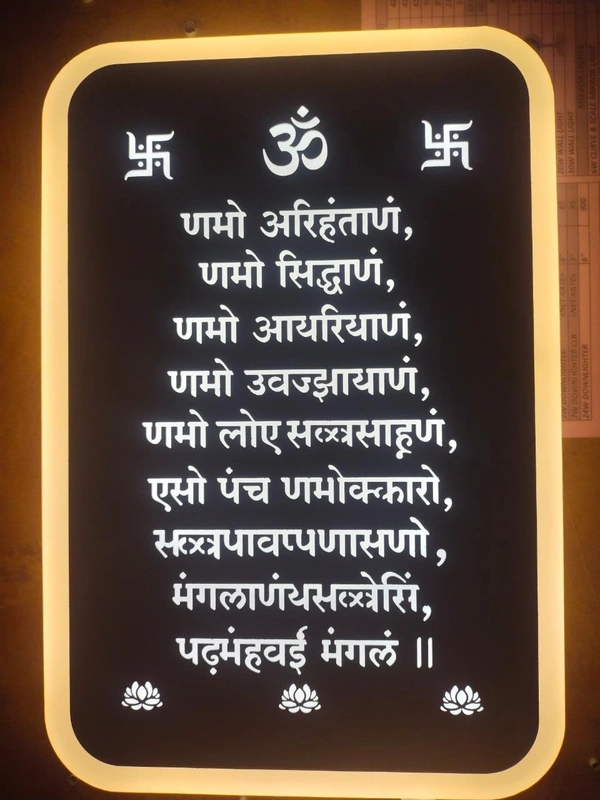 ॐ
णमो अरिहंताणं,
णमो सिद्धाणं,
णमो आयरियाणं,
णमो उवज्झायाणं,
णमो लोए सव्वसाहूणं,
एसो पंच णमोक्कारो,
सव्वपावप्पणासणो,
मंगलाणंथसव्वेसिं,
पढ़मंहवई मंगलं ॥